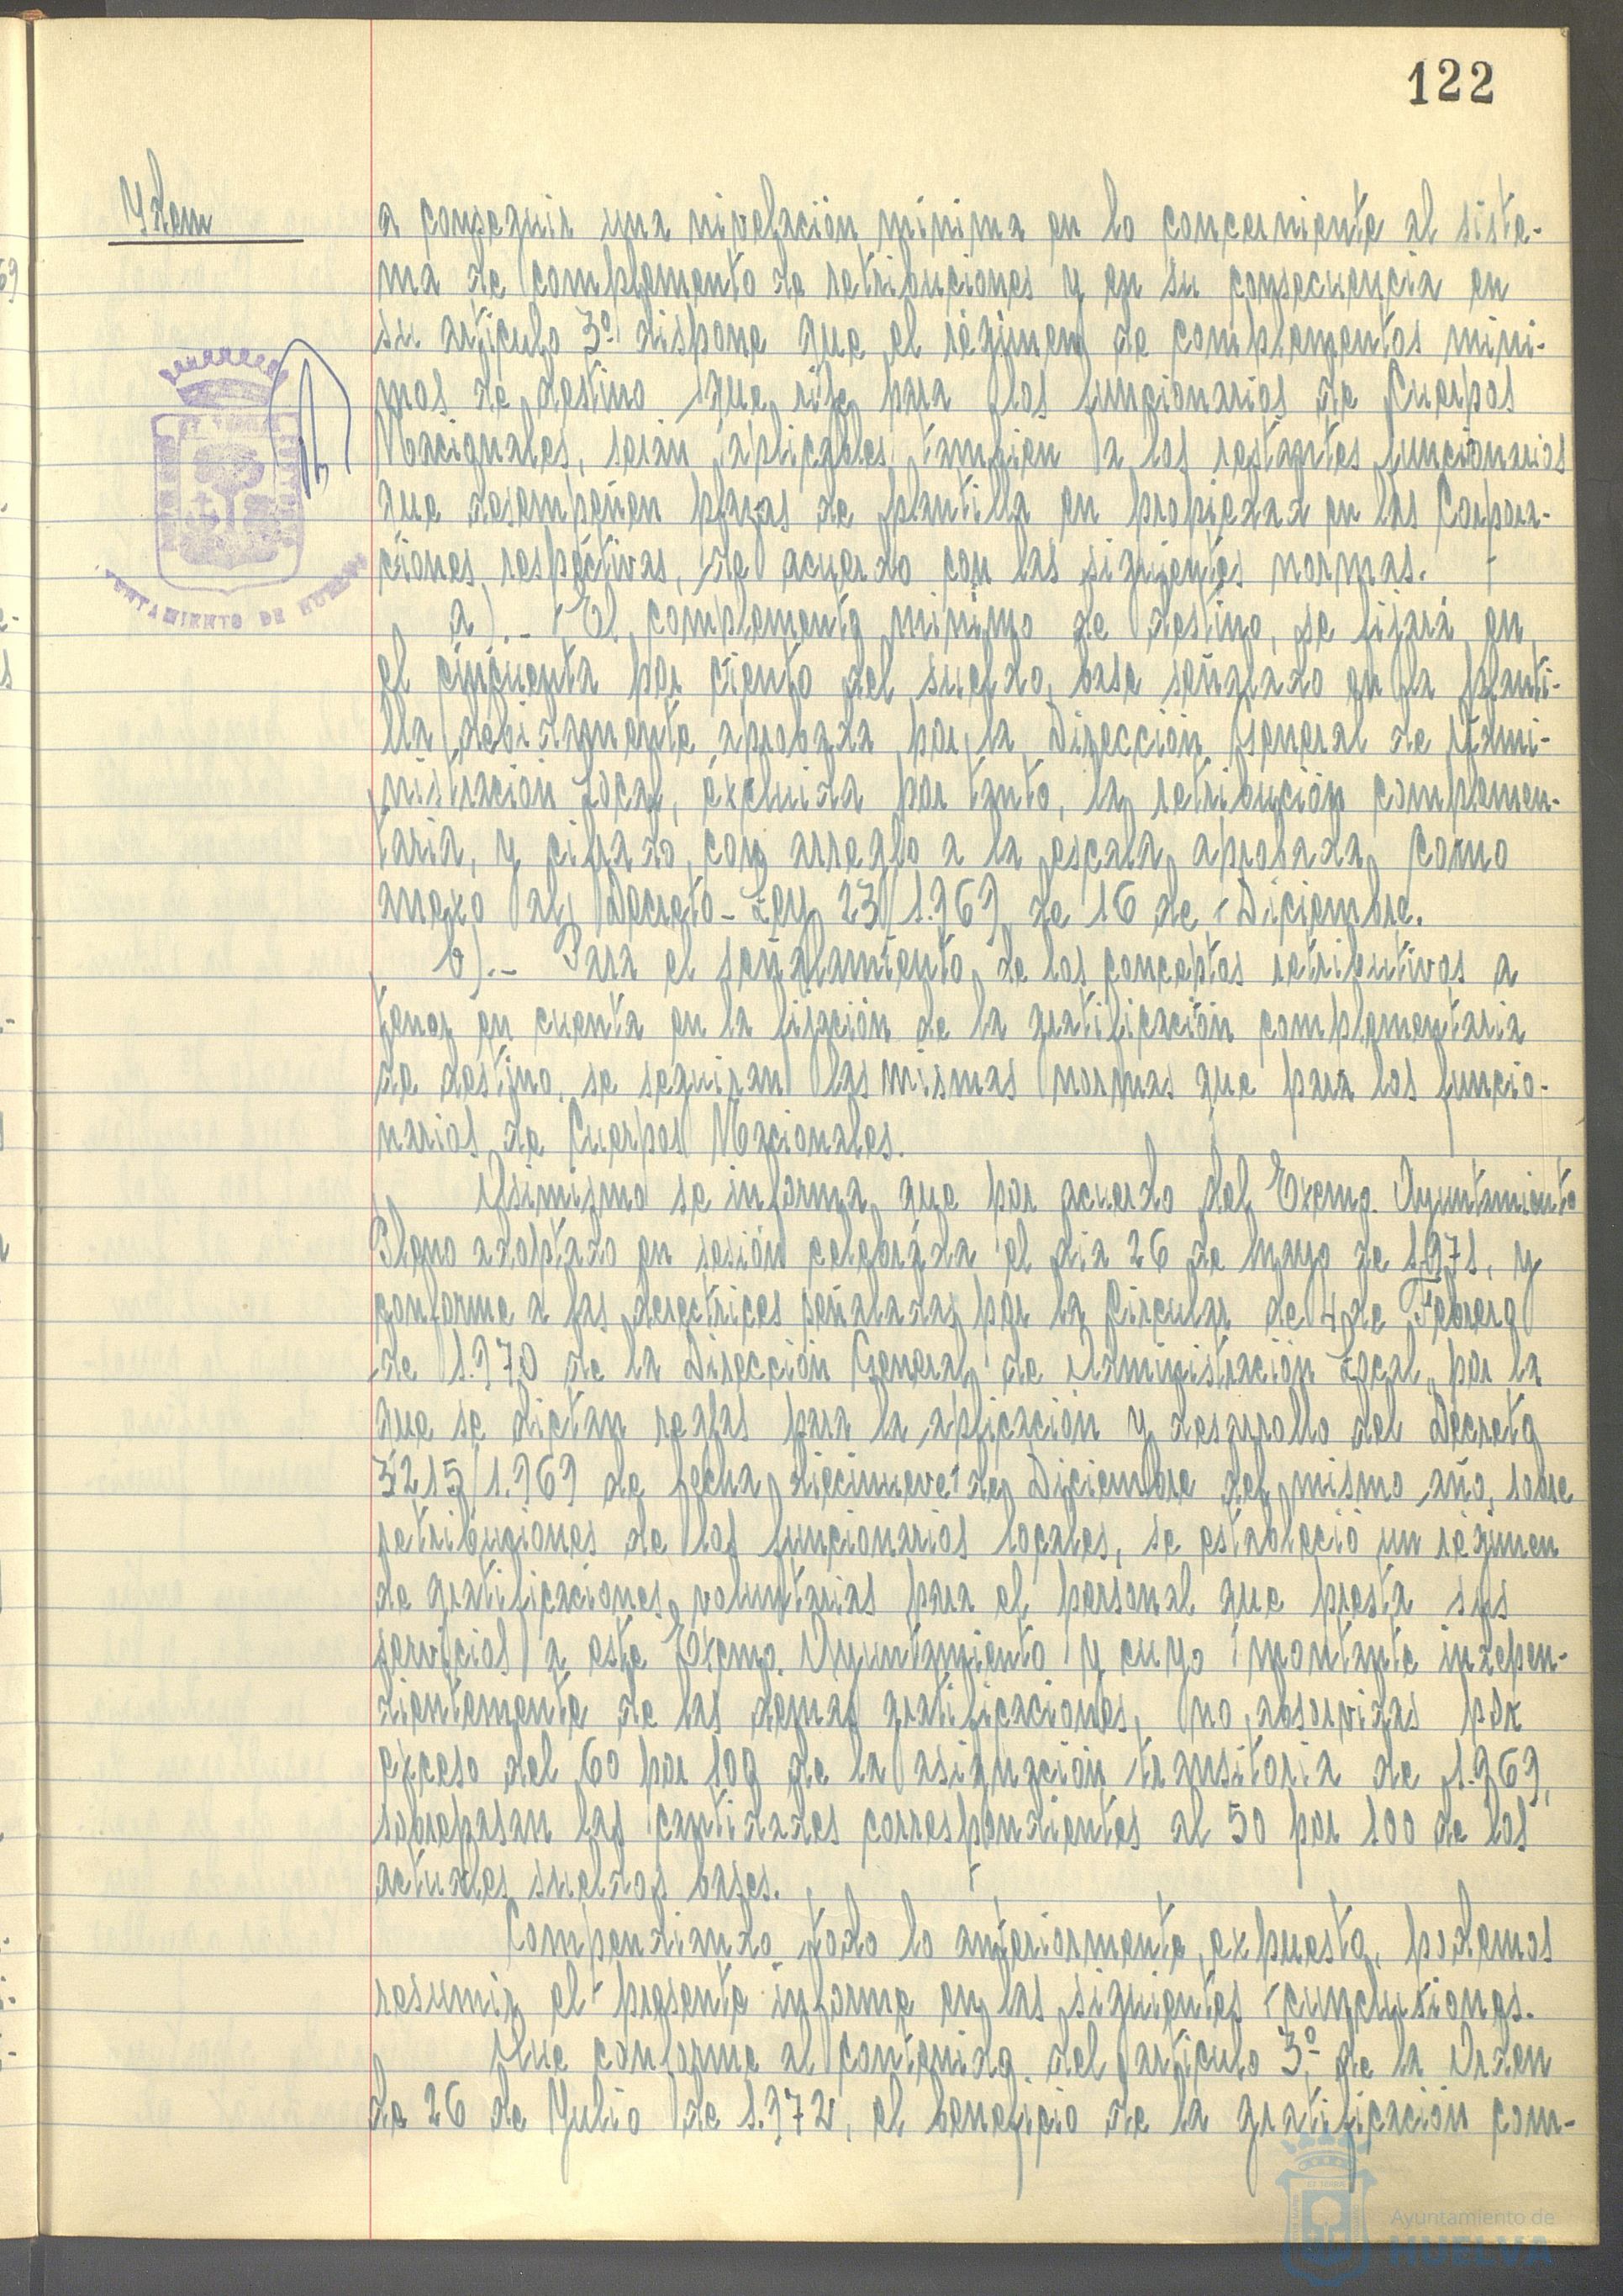 122
Ydem
a conseguir una nivelación mínima en lo concerniente al siste-
ma de complemento de retribuciones y en su consecuencia en
su artículo 3º dispone que el régimen de complementos míni-
mos de destino que rife para los funcionarios de Cuerpos
Nacionales, serán aplicables también a los restantes funcionarios
que desempeñen plazas de plantilla en propiedad en las Corpora-
ciones respectivas, de acuerdo con las siguientes normas.
a).- El complemento mínimo de destino, se fijará en
el cincuenta por ciento del sueldo base señalado en la planti-
lla debidamente aprobada por la Dirección General de Admi-
nistración Local, excluida por tanto, la retribución complemen-
taria, y cifrado con arreglo a la escala aprobada como
anexo al Decreto-Ley 23/1.969 de 16 de Diciembre.
b).- Para el señalamiento de los conceptos retributivos a
tener en cuenta en la fijación de la gratificación complementaria
de destino, se seguiran las mismas normas que para los funcio-
narios de Cuerpos Nacionales.
Asimismo se informa que por acuerdo del Excmo. Ayuntamiento
Pleno adoptado en sesión celebrada el día 26 de mayo de 1.971, y
conforme a las derectrices señaladas por la Circular de 4 de Febrero
de 1.970 de la Dirección General de Administración Local, por la
que se dictan reglas para la aplicación y desarrollo del Decreto
3215/1.969 de fecha diecinueve de Diciembre del mismo año, sobre
retribuciones de los funcionarios locales, se estableció un régimen
de gratificaciones voluntarias para el personal que presta sus
servicios a este Excmo. Ayuntamiento y cuyo montante indepen-
dientemente de las demas gratificaciones, no absorvidas por
exceso del 60 por 100 de la asignación transitoria de 1.969,
sobrepasan las cantidades correspondientes al 50 por 100 de los
actuales sueldos bases.
Compendiando todo lo anteriormente expuesto, podemos
resumir el presente informe en las siguientes conclusiones.
Que conforme al contenido del artículo 3º de la Orden
de 26 de Julio de 1.972, el beneficio de la gratificación com-
AYUNTAMIENTO DE HUELVA
Ayuntamiento de
HUELVA